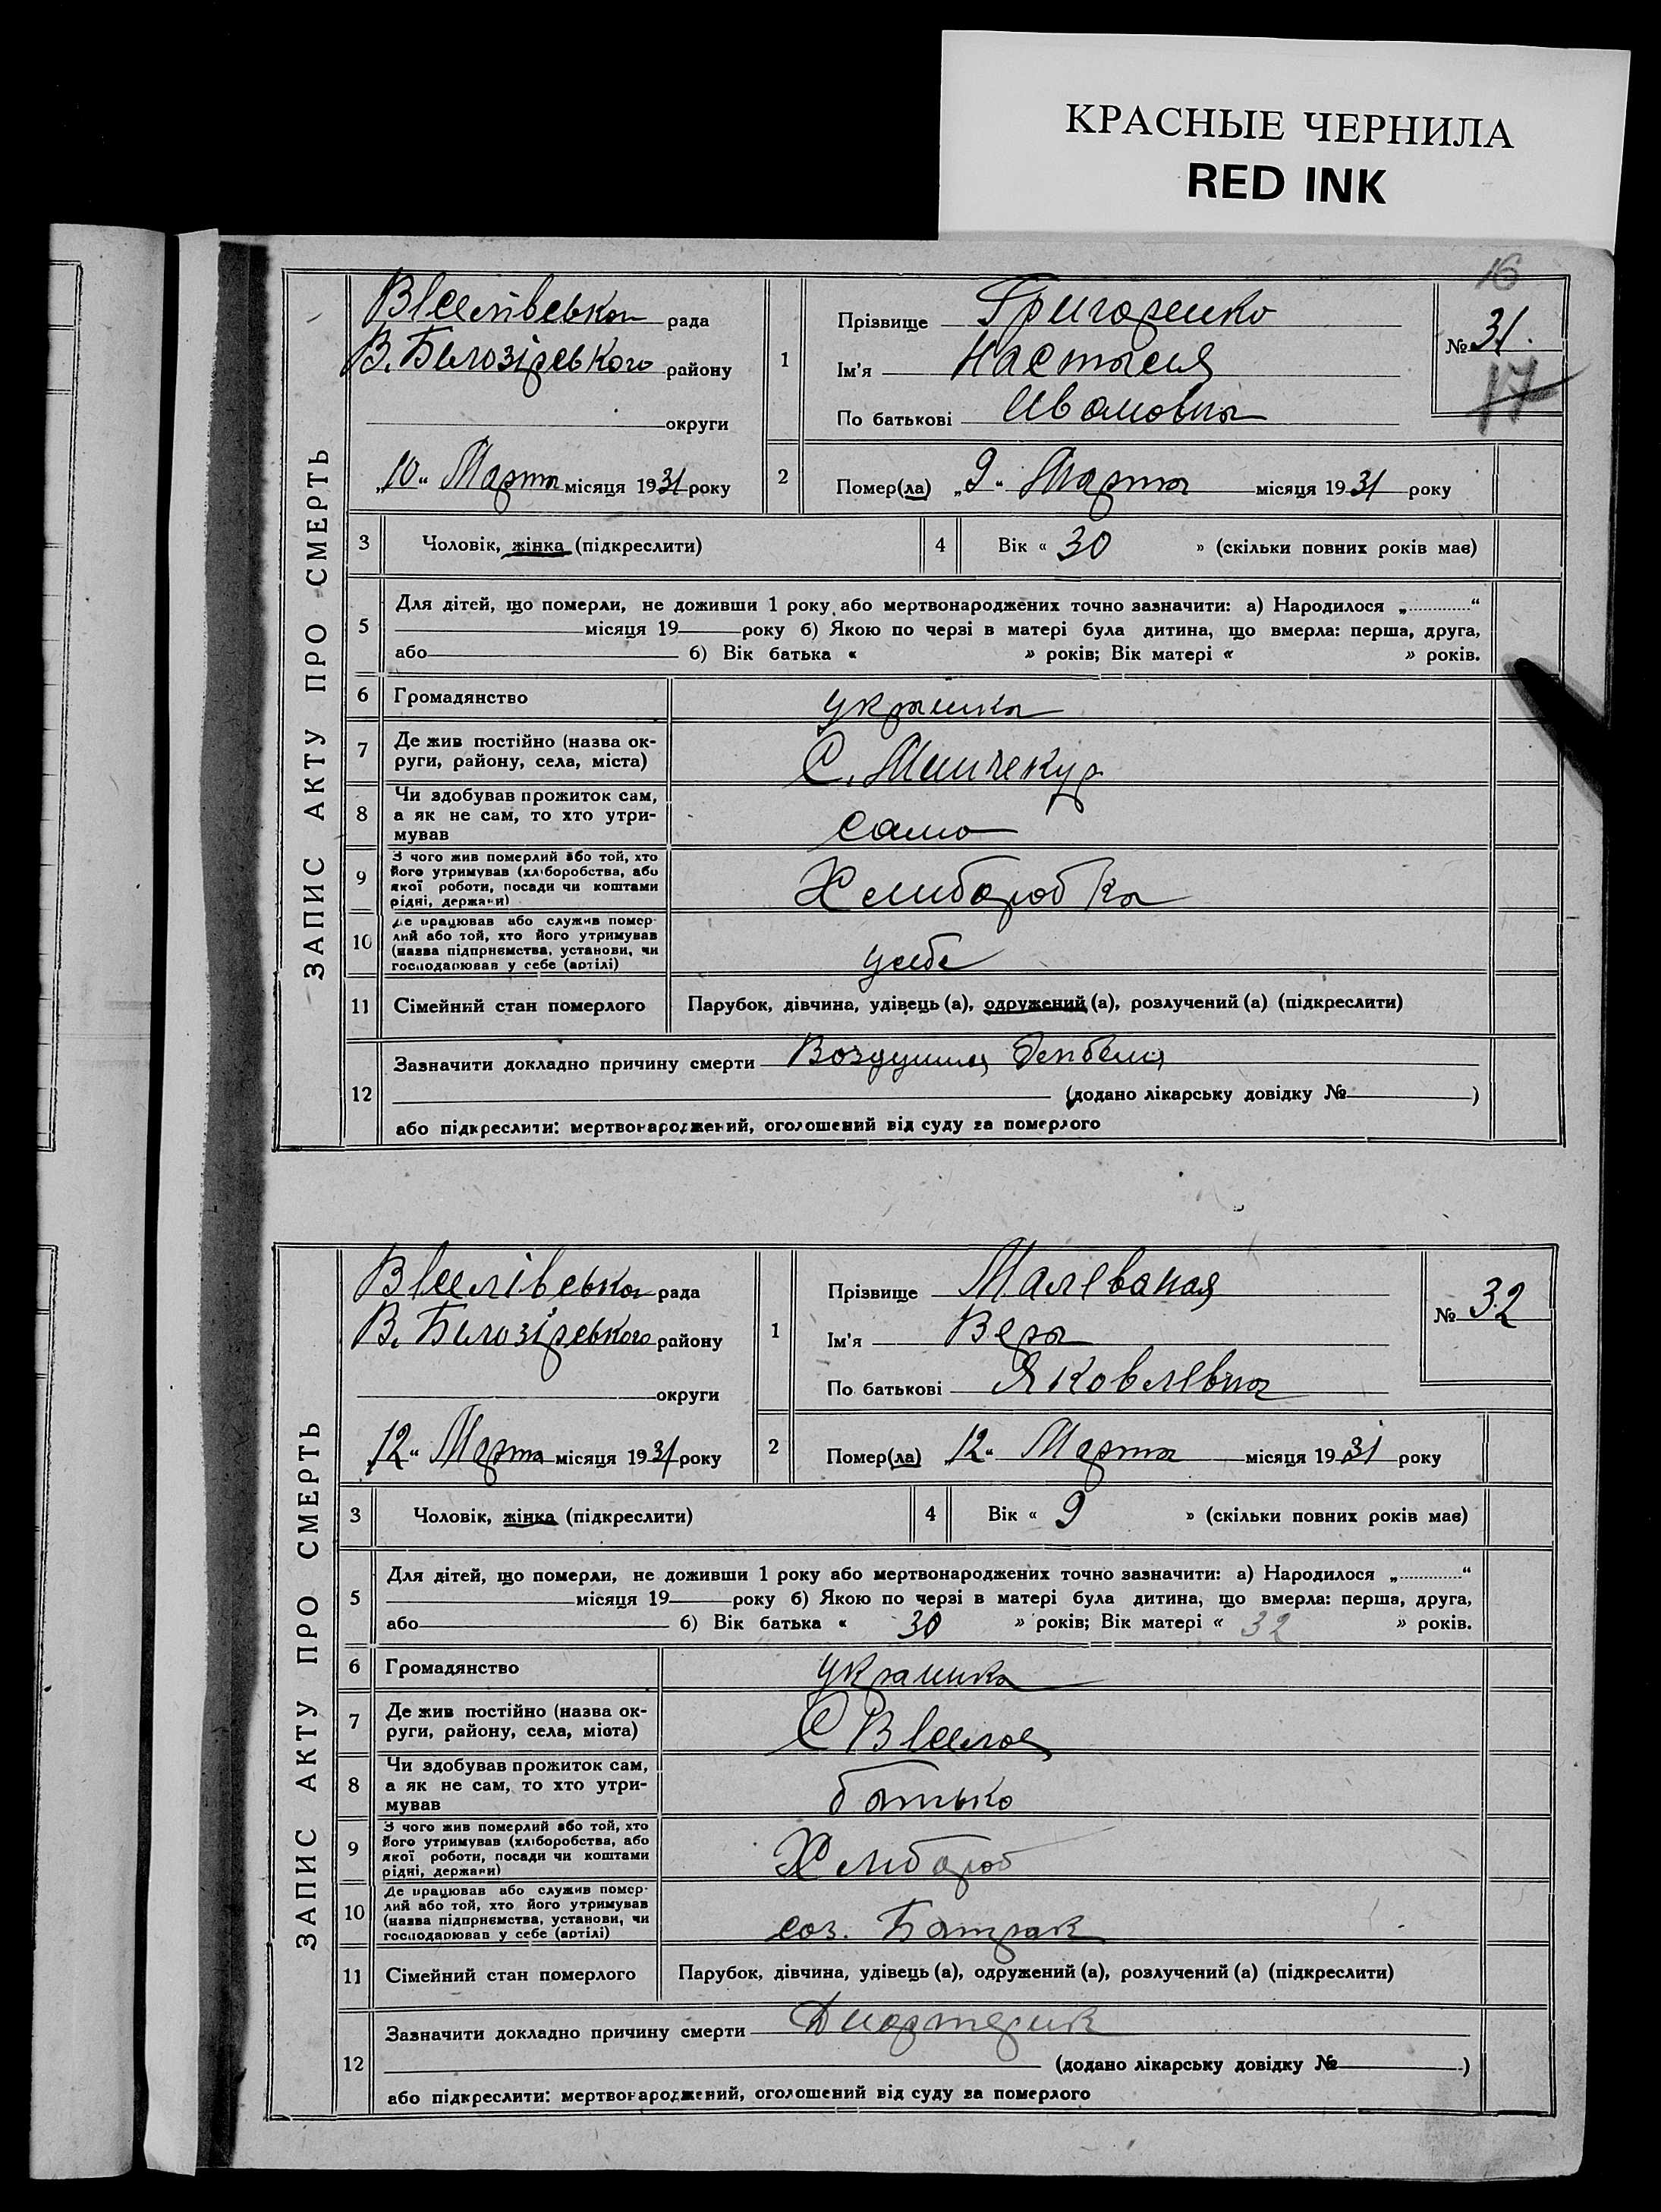 КРАСНЫЕ ЧЕРНИЛА
RED INK
16
ЗАПИС АКТУ ПРО СМЕРТЬ
рада
В. Белозірського району
округи
„10“ Марта місяця 1931 року
1
Прізвище Григоренко
Ім'я Настасия
По батькові Ивановна
№ 31.
17
2
Помер(ла) „9“ Марта місяця 1931 року
3 Чоловік, жінка (підкреслити)
4 Вік « 30 » (скільки повних років має)
5 Для дітей, що померли, не доживши 1 року або мертвонароджених точно зазначити: а) Народилося „............“
місяця 19 року б) Якою по черзі в матері була дитина, що вмерла: перша, друга,
або б) Вік батька « » років; Вік матері « » років.
6 Громадянство украинка
7 Де жив постійно (назва ок-
руги, району, села, міста)
С. Мингекур
8 Чи здобував прожиток сам,
а як не сам, то хто утри-
мував
сама
9 З чого жив померлий або той, хто
його утримував (хліборобства, або
якої роботи, посади чи коштами
рідні, держави)
Хлиборобка
10 Де працював або служив помер-
лий або той, хто його утримував
(назва підприємства, установи, чи
господарював у себе (артілі)
усебе
11 Сімейний стан померлого Парубок, дівчина, удівець (а), одружений (а), розлучений (а) (підкреслити)
12 Зазначити докладно причину смерти
(додано лікарську довідку № )
або підкреслити: мертвонароджений, оголошений від суду за померлого
ЗАПИС АКТУ ПРО СМЕРТЬ
рада
В. Белозірського району
округи
„12“ Марта місяця 1931 року
1
Прізвище Малеваная
Ім'я Вера
По батькові Яковлевна
№ 32
2
Помер(ла) „12“ Марта місяця 1931 року
3 Чоловік, жінка (підкреслити)
4 Вік « 9 » (скільки повних років має)
5 Для дітей, що померли, не доживши 1 року або мертвонароджених точно зазначити: а) Народилося „............“
місяця 19 року б) Якою по черзі в матері була дитина, що вмерла: перша, друга,
або б) Вік батька « 30 » років; Вік матері « 32 » років.
6 Громадянство украинка
7 Де жив постійно (назва ок-
руги, району, села, міста)
С
8 Чи здобував прожиток сам,
а як не сам, то хто утри-
мував
батько
9 З чого жив померлий або той, хто
його утримував (хліборобства, або
якої роботи, посади чи коштами
рідні, держави)
Хлибороб
10 Де працював або служив помер-
лий або той, хто його утримував
(назва підприємства, установи, чи
господарював у себе (артілі)
соз. Батрак
11 Сімейний стан померлого Парубок, дівчина, удівець (а), одружений (а), розлучений (а) (підкреслити)
12 Зазначити докладно причину смерти
(додано лікарську довідку № )
або підкреслити: мертвонароджений, оголошений від суду за померлого